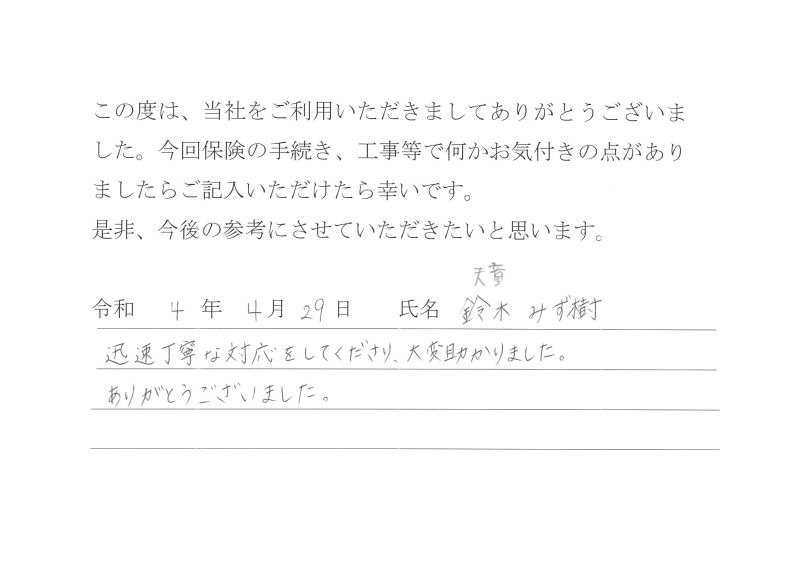 この度は、当社をご利用いただきましてありがとうございま
した。今回保険の手続き、工事等で何かお気付きの点があり
ましたらご記入いただけたら幸いです。
是非、今後の参考にさせていただきたいと思います。
天童
令和 4 年 4月 29日 氏名 鈴木 みず樹
迅速丁寧な対応をしてくださり、大変助かりました。
ありがとうございました。